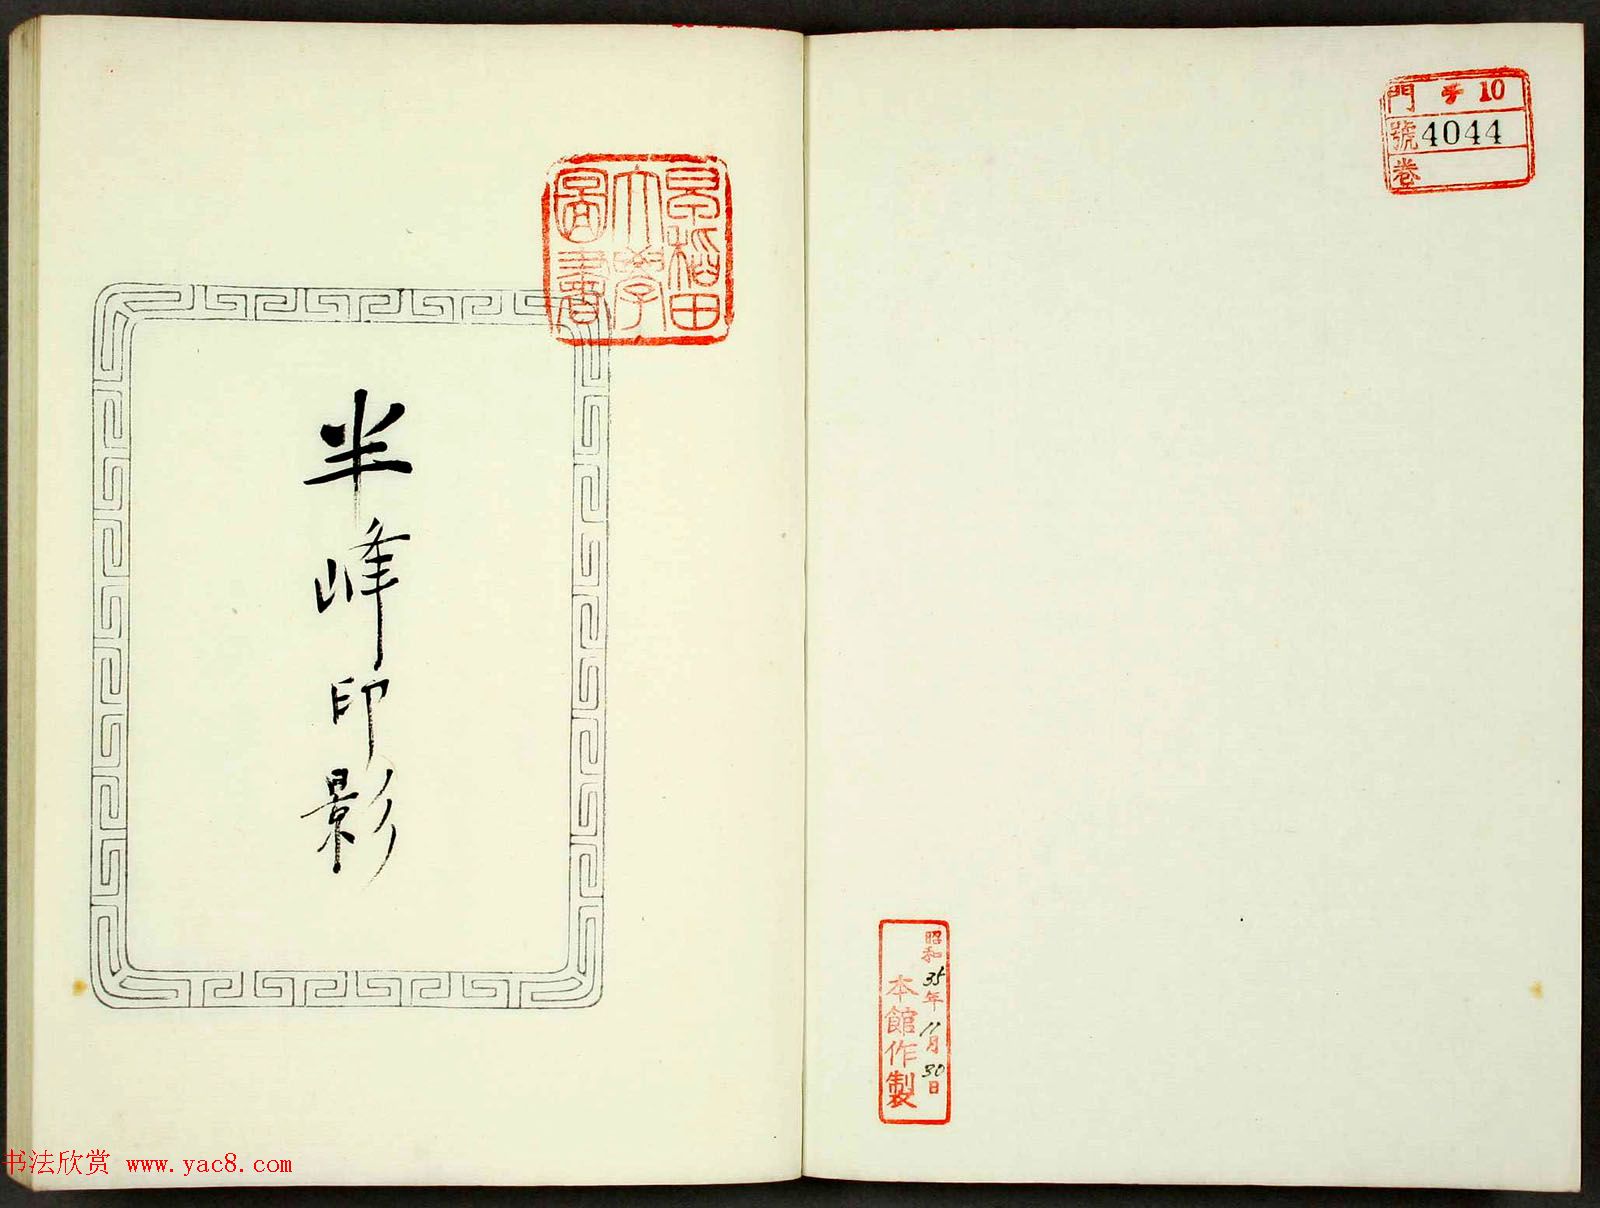 門 チ 10
號 4044
卷
昭和35年11月30日
本館作製
早稻田
大學
圖書
半峰印影
书法欣赏 www.yac8.com